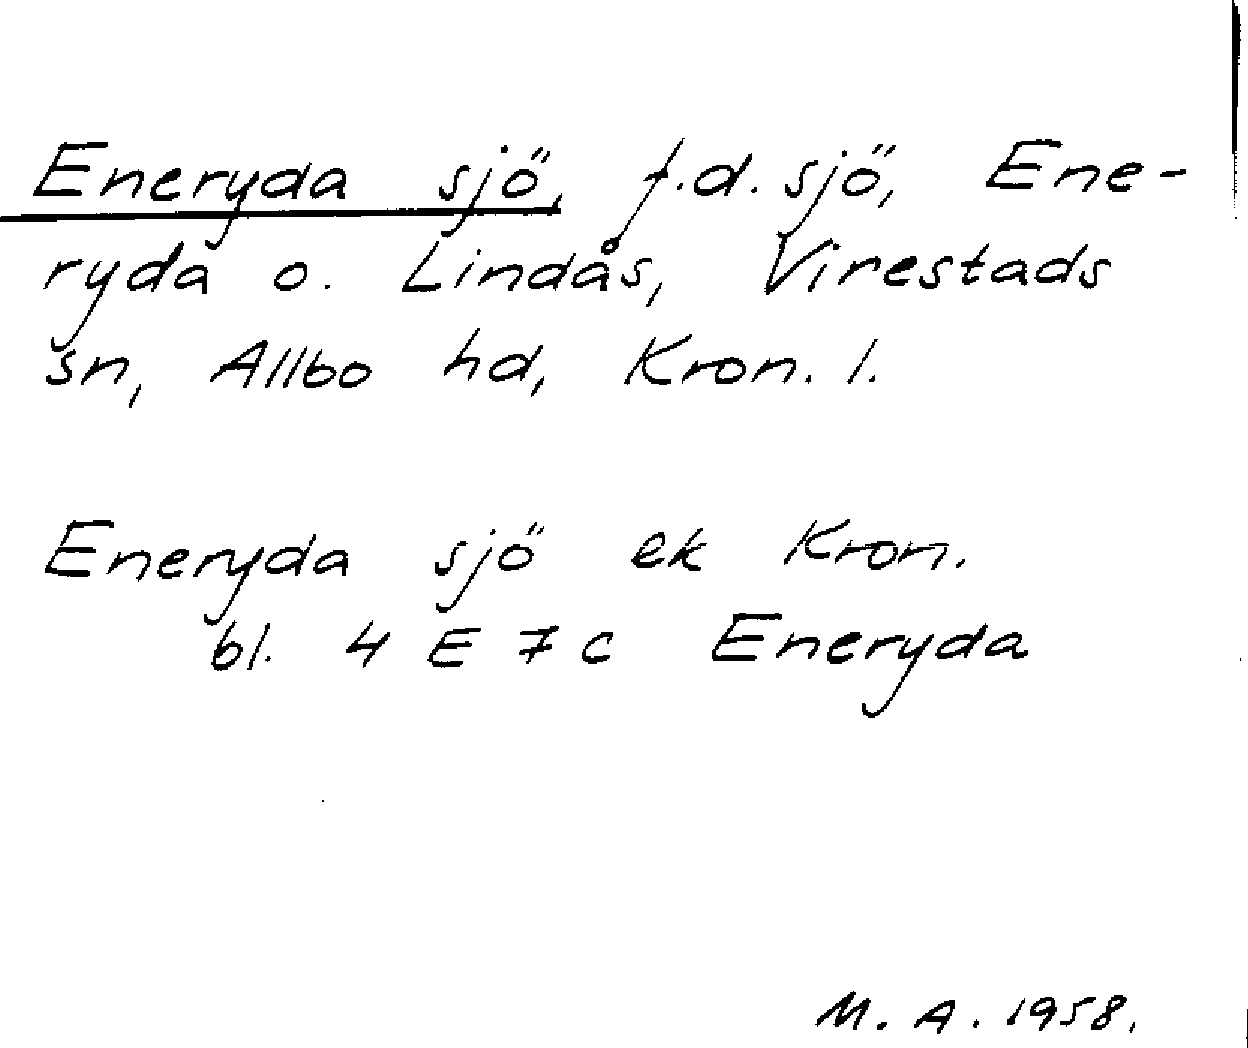 Eneryda sjö, f.d. sjö, Ene-
ryda o. Lindås, Virestads
sn, Allbo hd, Kron. l.
Eneryda sjö ek Kron.
bl. 4 E 7 c Eneryda
M. A. 1958.